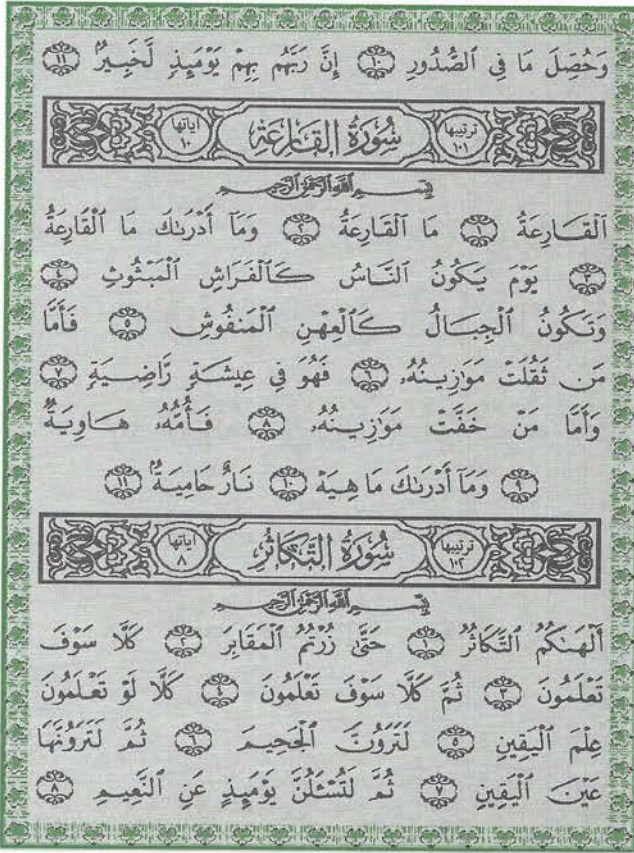 وَحُصِّلَ مَا فِي ٱلصُّدُورِ ١٠ إِنَّ رَبَّهُم بِهِمْ يَوْمَئِذٍ لَّخَبِيرٌۢ ١١
ترتيبها ١٠١ سُورَةُ القَارِعَةِ اياتها ١٠
بِسْمِ ٱللَّهِ ٱلرَّحْمَٰنِ ٱلرَّحِيمِ
ٱلْقَارِعَةُ ١ مَا ٱلْقَارِعَةُ ٢ وَمَآ أَدْرَىٰكَ مَا ٱلْقَارِعَةُ
٣ يَوْمَ يَكُونُ ٱلنَّاسُ كَٱلْفَرَاشِ ٱلْمَبْثُوثِ ٤
وَتَكُونُ ٱلْجِبَالُ كَٱلْعِهْنِ ٱلْمَنفُوشِ ٥ فَأَمَّا
مَن ثَقُلَتْ مَوَٰزِينُهُۥ ٦ فَهُوَ فِي عِيشَةٍ رَّاضِيَةٍ ٧
وَأَمَّا مَنْ خَفَّتْ مَوَٰزِينُهُۥ ٨ فَأُمُّهُۥ هَاوِيَةٌ
٩ وَمَآ أَدْرَىٰكَ مَا هِيَهْ ١٠ نَارٌ حَامِيَةٌۢ ١١
ترتيبها ١٠٢ سُورَةُ التَّكَاثُرِ اياتها ٨
بِسْمِ ٱللَّهِ ٱلرَّحْمَٰنِ ٱلرَّحِيمِ
أَلْهَىٰكُمُ ٱلتَّكَاثُرُ ١ حَتَّىٰ زُرْتُمُ ٱلْمَقَابِرَ ٢ كَلَّا سَوْفَ
تَعْلَمُونَ ٣ ثُمَّ كَلَّا سَوْفَ تَعْلَمُونَ ٤ كَلَّا لَوْ تَعْلَمُونَ
عِلْمَ ٱلْيَقِينِ ٥ لَتَرَوُنَّ ٱلْجَحِيمَ ٦ ثُمَّ لَتَرَوُنَّهَا
عَيْنَ ٱلْيَقِينِ ٧ ثُمَّ لَتُسْـَٔلُنَّ يَوْمَئِذٍ عَنِ ٱلنَّعِيمِ ٨